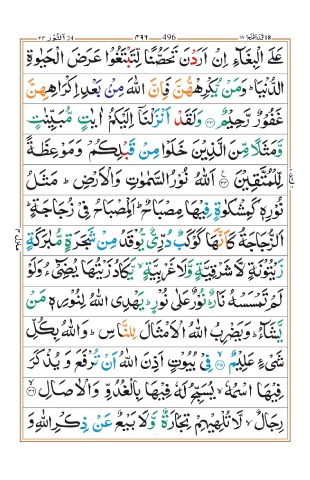 النور ٢٤ ٤٩٦ 496 قد افلح ١٨
عَلَى الْبِغَآءِ اِنْ اَرَدْنَ تَحَصُّنًا لِّتَبْتَغُوْا عَرَضَ الْحَيٰوةِ
الدُّنْيَا ؕ وَمَنْ يُّكْرِهْهُّنَّ فَاِنَّ اللّٰهَ مِنْۢ بَعْدِ اِكْرَاهِهِنَّ
غَفُوْرٌ رَّحِيْمٌ ﴿٣٣﴾ وَلَقَدْ اَنْزَلْنَاۤ اِلَيْكُمْ اٰيٰتٍ مُّبَيِّنٰتٍ
وَّمَثَلًا مِّنَ الَّذِيْنَ خَلَوْا مِنْ قَبْلِكُمْ وَمَوْعِظَةً
لِّلْمُتَّقِيْنَ ﴿٣٤﴾ اَللّٰهُ نُوْرُ السَّمٰوٰتِ وَالْاَرْضِ ؕ مَثَلُ
نُوْرِهٖ كَمِشْكٰوةٍ فِيْهَا مِصْبَاحٌ ؕ اَلْمِصْبَاحُ فِيْ زُجَاجَةٍ ؕ
اَلزُّجَاجَةُ كَاَنَّهَا كَوْكَبٌ دُرِّيٌّ يُّوْقَدُ مِنْ شَجَرَةٍ مُّبٰرَكَةٍ
زَيْتُوْنَةٍ لَّا شَرْقِيَّةٍ وَّلَا غَرْبِيَّةٍ ۙ يَّكَادُ زَيْتُهَا يُضِيْٓءُ وَلَوْ
لَمْ تَمْسَسْهُ نَارٌ ؕ نُوْرٌ عَلٰى نُوْرٍ ؕ يَهْدِى اللّٰهُ لِنُوْرِهٖ مَنْ
يَّشَآءُ ؕ وَيَضْرِبُ اللّٰهُ الْاَمْثَالَ لِلنَّاسِ ؕ وَاللّٰهُ بِكُلِّ
شَىْءٍ عَلِيْمٌ ﴿٣٥﴾ فِيْ بُيُوْتٍ اَذِنَ اللّٰهُ اَنْ تُرْفَعَ وَ يُذْكَرَ
فِيْهَا اسْمُهٗ ۙ يُسَبِّحُ لَهٗ فِيْهَا بِالْغُدُوِّ وَالْاٰصَالِ ﴿٣٦﴾
رِجَالٌ ۙ لَّا تُلْهِيْهِمْ تِجَارَةٌ وَّلَا بَيْعٌ عَنْ ذِكْرِ اللّٰهِ وَ